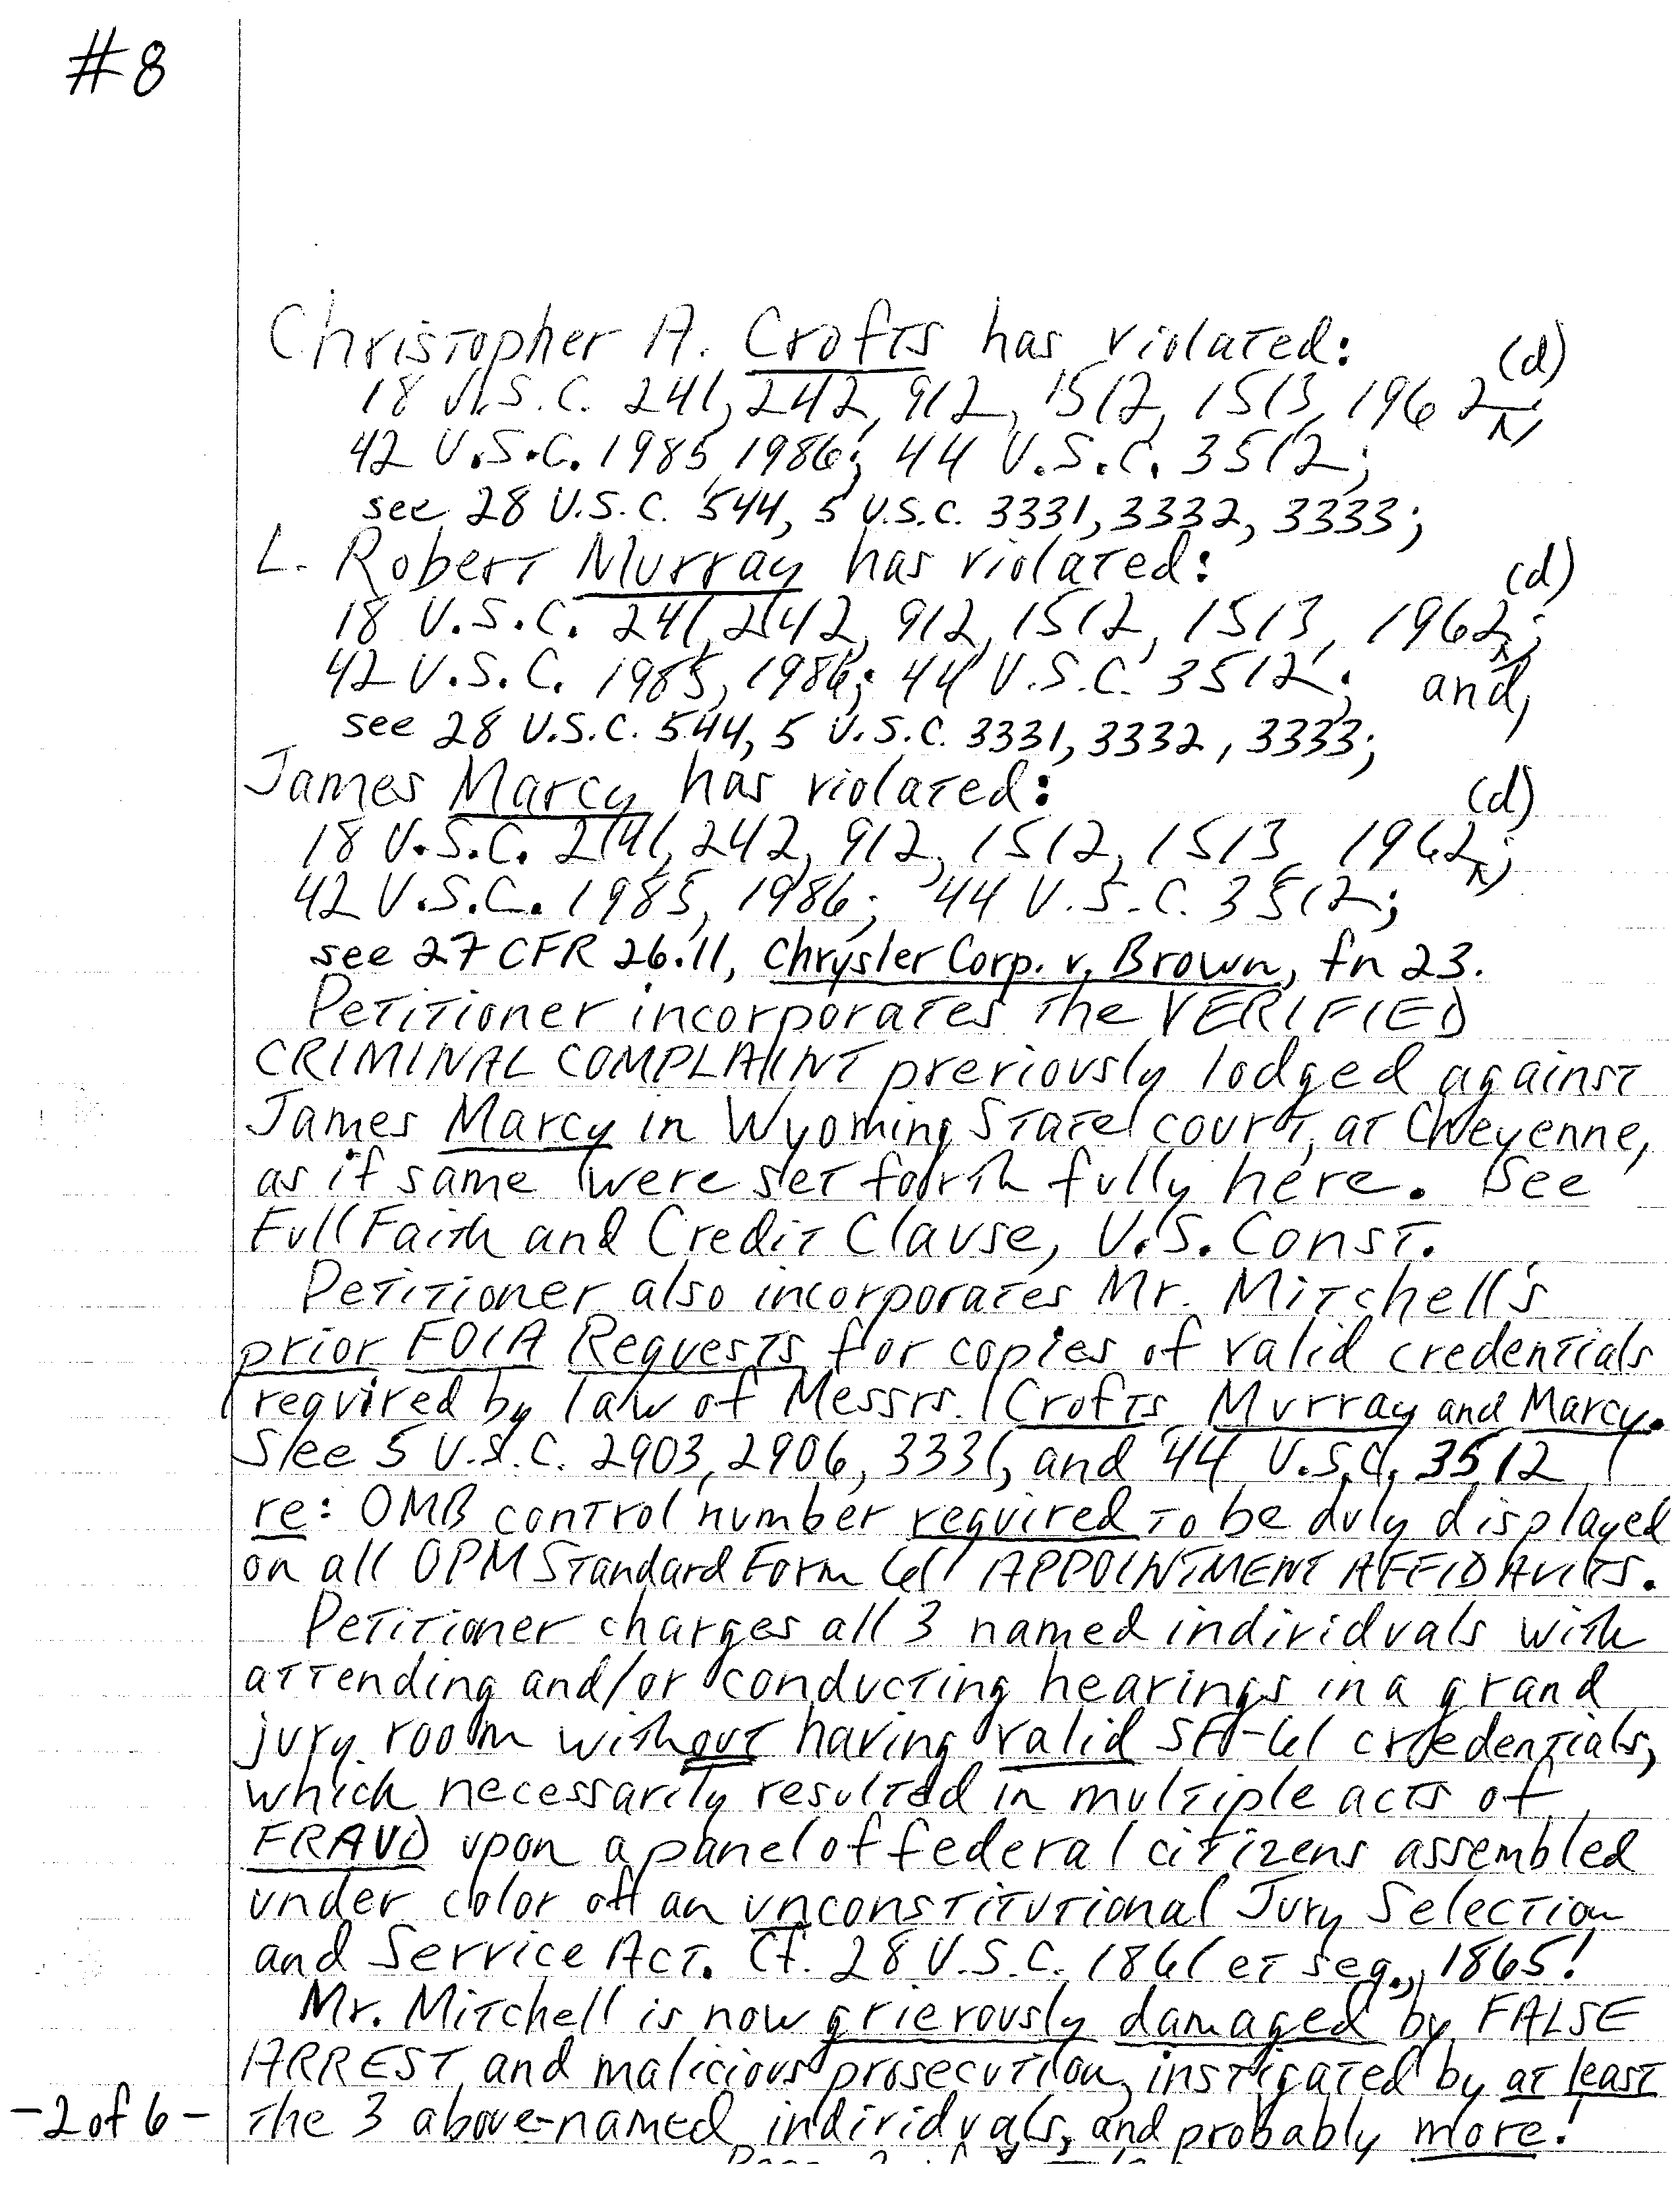 #8
Christopher A. Crofts has violated:
18 U.S.C. 241, 242, 912, 1512, 1513, 1962(d)
42 U.S.C. 1985, 1986; 44 U.S.C. 3512;
see 28 U.S.C. 544, 5 U.S.C. 3331, 3332, 3333;
L. Robert Murray has violated:
18 U.S.C. 241, 242, 912, 1512, 1513, 1962(d);
42 U.S.C. 1985, 1986; 44 U.S.C. 3512; and,
see 28 U.S.C. 544, 5 U.S.C. 3331, 3332, 3333;
James Marcy has violated:
18 U.S.C. 241, 242, 912, 1512, 1513, 1962(d);
42 U.S.C. 1985, 1986; 44 U.S.C. 3512;
see 27 CFR 26.11, Chrysler Corp. v. Brown, fn 23.
Petitioner incorporates the VERIFIED
CRIMINAL COMPLAINT previously lodged against
James Marcy in Wyoming State court, at Cheyenne,
as if same were set forth fully here. See
Full Faith and Credit Clause, U.S. Const.
Petitioner also incorporates Mr. Mitchell's
prior FOIA Requests for copies of valid credentials
required by law of Messrs. Crofts, Murray and Marcy.
See 5 U.S.C. 2903, 2906, 3331, and 44 U.S.C. 3512
re: OMB control number required to be duly displayed
on all OPM Standard Form 61 APPOINTMENT AFFIDAVITS.
Petitioner charges all 3 named individuals with
attending and/or conducting hearings in a grand
jury room without having valid SF-61 credentials,
which necessarily resulted in multiple acts of
FRAUD upon a panel of federal citizens assembled
under color of an unconstitutional Jury Selection
and Service Act. Cf. 28 U.S.C. 1861 et seq., 1865!
Mr. Mitchell is now grievously damaged by FALSE
ARREST and malicious prosecution, instigated by at least
-2 of 6- the 3 above-named individuals, and probably more!